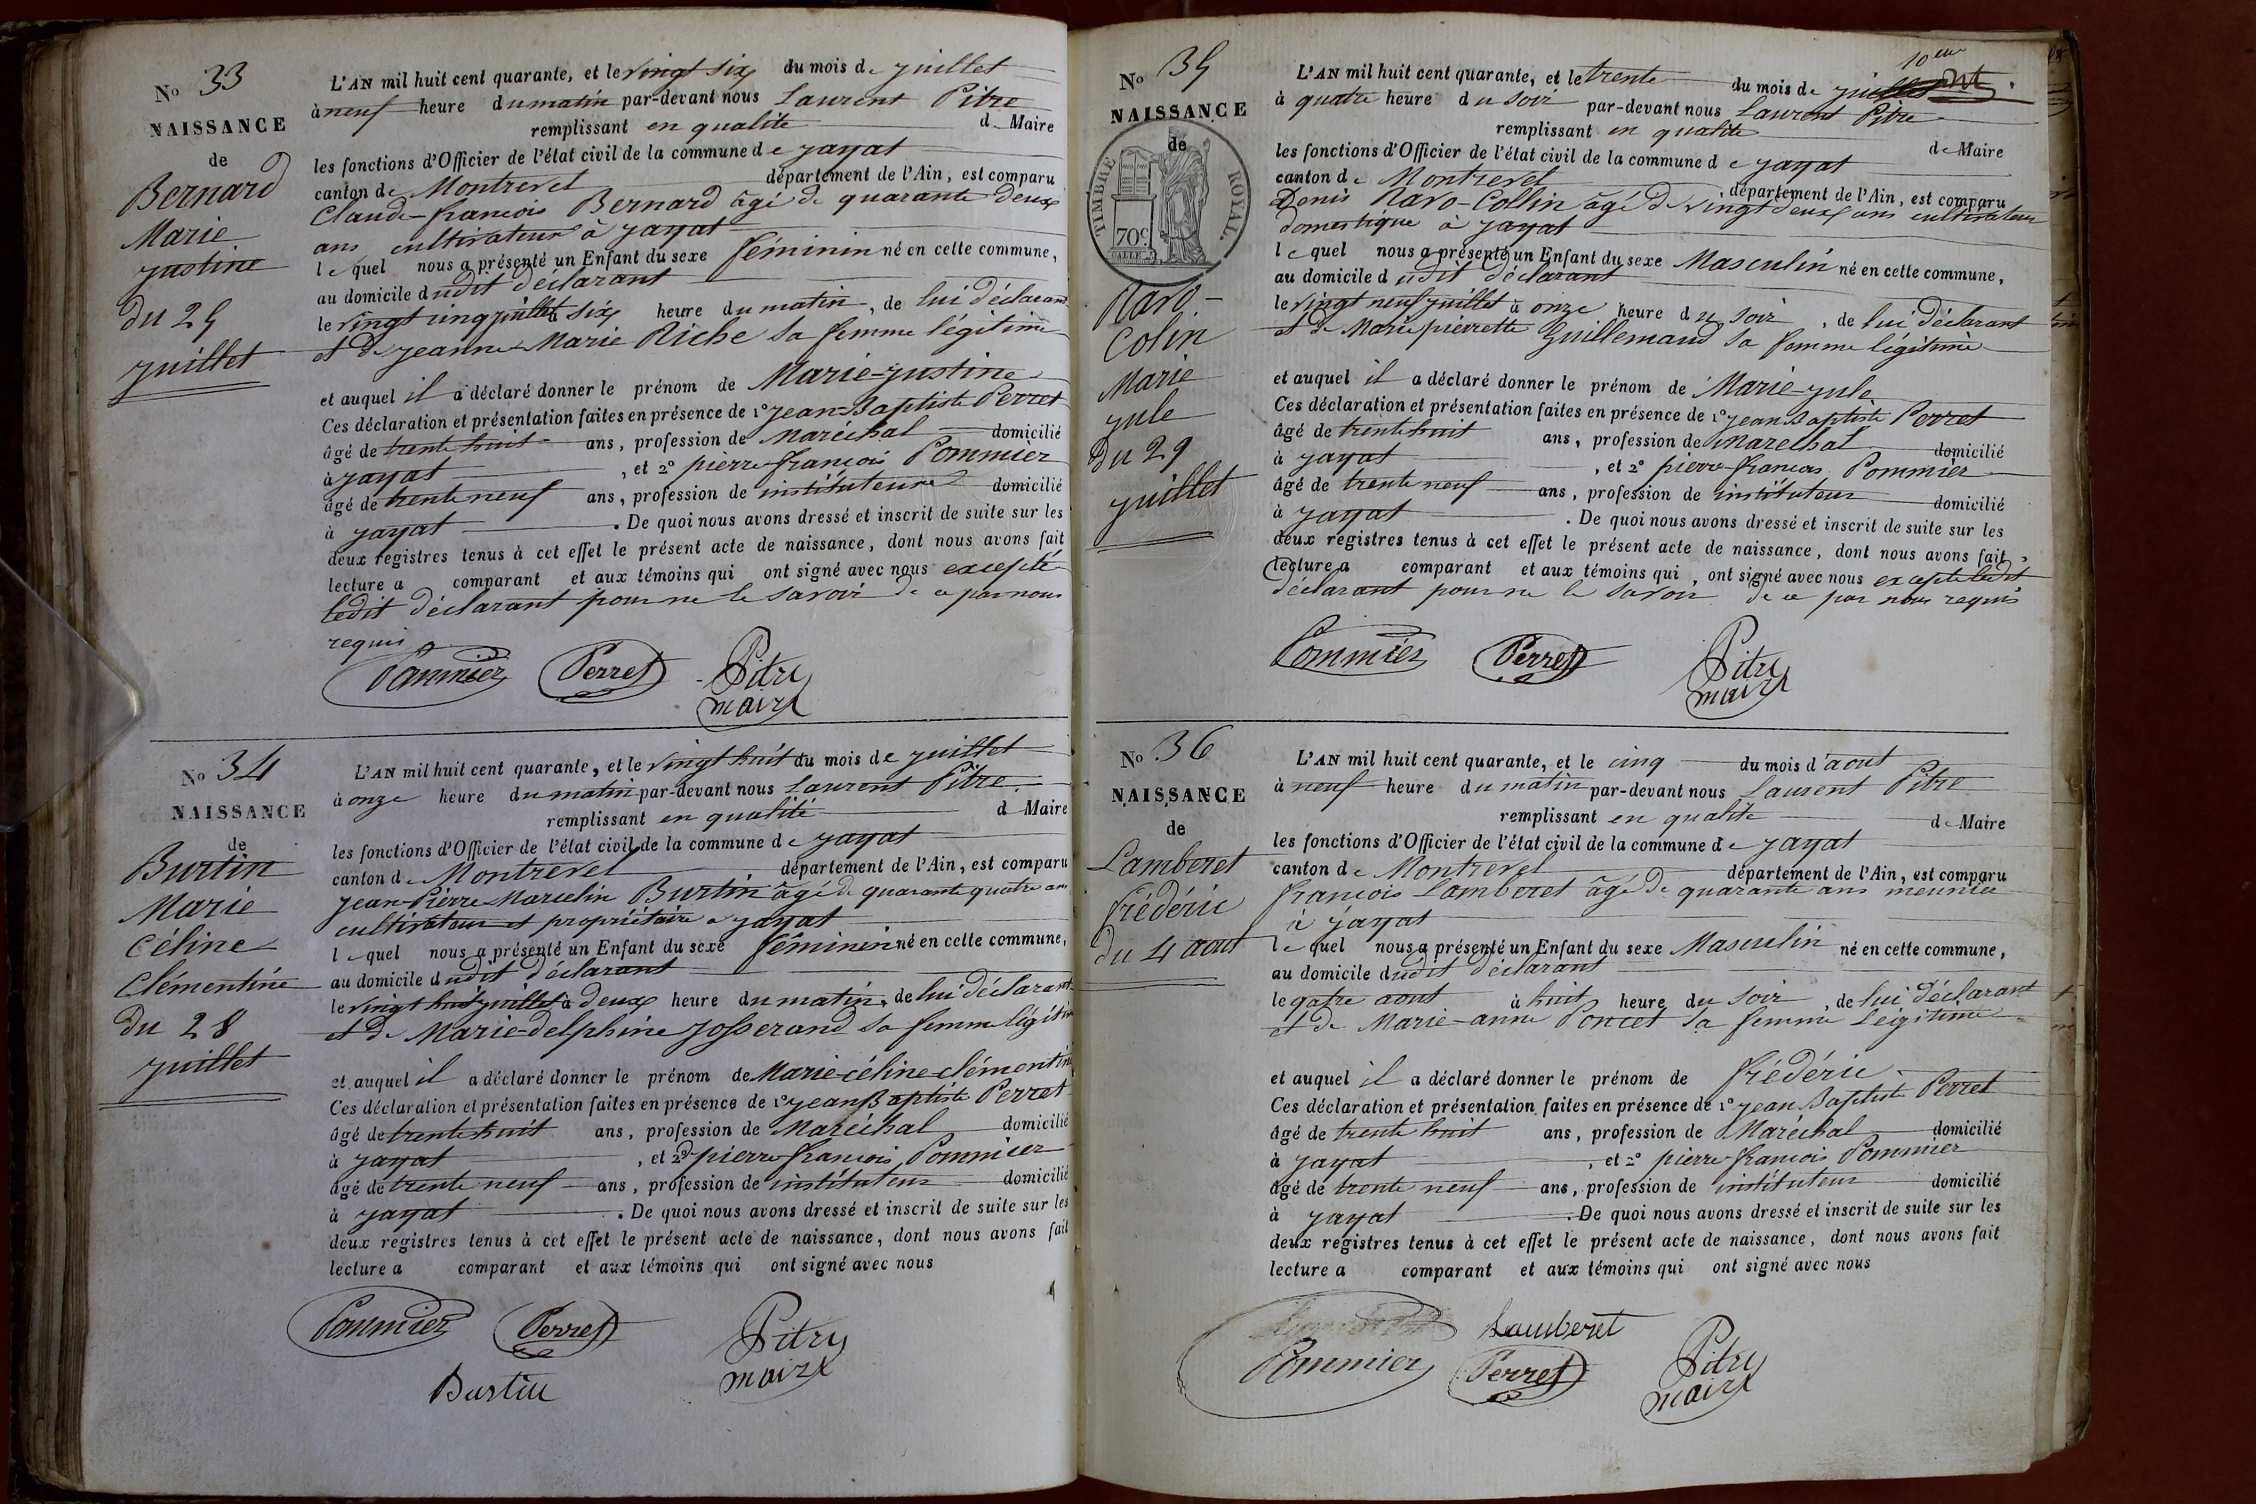 No 33
NAISSANCE
de
Bernard
Marie
justine
du 25
juillet
L'AN mil huit cent quarante, et le vingt six du mois de juillet
à neuf heure du matin par-devant nous Laurent Pitre
remplissant en qualité de Maire
les fonctions d'Officier de l'état civil de la commune de jayat
canton de Montrevel département de l'Ain, est comparu
Claude-françois Bernard âgé de quarante deux
ans cultivateur à jayat
lequel nous a présenté un Enfant du sexe féminin né en cette commune,
au domicile dudit déclarant
le vingt cinq juillet à six heure du matin, de lui déclarant
et de jeanne Marie Riche sa femme légitime
et auquel il a déclaré donner le prénom de Marie-justine
Ces déclaration et présentation faites en présence de 1° jean-Baptiste Perret
âgé de trente huit ans, profession de Maréchal domicilié
à jayat, et 2° pierre-françois Pommier
âgé de trente neuf ans, profession de instituteur domicilié
à jayat. De quoi nous avons dressé et inscrit de suite sur les
deux registres tenus à cet effet le présent acte de naissance, dont nous avons fait
lecture a comparant et aux témoins qui ont signé avec nous excepté
ledit déclarant pour ne le savoir de ce par nous
requis
Pommier Perret Pitre
maire
No 34
NAISSANCE
de
Burtin
Marie
Céline
Clémentine
du 28
juillet
L'AN mil huit cent quarante, et le vingt huit du mois de juillet
à onze heure du matin par-devant nous Laurent Pitre
remplissant en qualité d Maire
les fonctions d'Officier de l'état civil de la commune de jayat
canton de Montrevel département de l'Ain, est comparu
jean-Pierre Marcelin Burtin âgé de quarante quatre ans
cultivateur et propriétaire a jayat
lequel nous a présenté un Enfant du sexe féminin né en cette commune,
au domicile dudit déclarant
le vingt huit juillet à deux heure du matin, de lui déclarant
et de Marie-delphine josserand sa femme légitime
et auquel il a déclaré donner le prénom de Marie-céline-clémentine
Ces déclaration et présentation faites en présence de 1° jean Baptiste Perret
âgé de trente huit ans, profession de Maréchal domicilié
à jayat, et 2° pierre françois Pommier
âgé de trente neuf ans, profession de instituteur domicilié
à jayat. De quoi nous avons dressé et inscrit de suite sur les
deux registres tenus à cet effet le présent acte de naissance, dont nous avons fait
lecture a comparant et aux témoins qui ont signé avec nous
Pommier Perret Pitre
maire
Burtin
No 35
NAISSANCE
de
TIMBRE ROYAL.
70c
Ravo-
Colin
Marie
jule
du 29
juillet
10em
L'AN mil huit cent quarante, et le trente du mois de juillet
à quatre heure du soir par-devant nous Laurent Pitre
remplissant en qualité de Maire
les fonctions d'Officier de l'état civil de la commune de jayat
canton de Montrevel département de l'Ain, est comparu
Denis Ravo-Collin âgé de vingt deux ans cultivateur
domestique à jayat
lequel nous a présenté un Enfant du sexe Masculin né en cette commune,
au domicile dudit déclarant
le vingt neuf juillet à onze heure du soir, de lui déclarant
et de Marie pierrette Guillemaud sa femme légitime
et auquel il a déclaré donner le prénom de Marie-jule
Ces déclaration et présentation faites en présence de 1° jean Baptiste Perret
âgé de trente huit ans, profession de Marechal domicilié
à jayat, et 2° pierre-françois Pommier
âgé de trente neuf ans, profession de instituteur domicilié
à jayat. De quoi nous avons dressé et inscrit de suite sur les
deux registres tenus à cet effet le présent acte de naissance, dont nous avons fait
lecture a comparant et aux témoins qui, ont signé avec nous excepté ledit
déclarant pour ne le savoir de ce par nous requis
Pommier Perret Pitre
maire
No 36
NAISSANCE
de
Lamberet
frédéric
du 4 aout
L'AN mil huit cent quarante, et le cinq du mois d'aout
à neuf heure du matin par-devant nous Laurent Pitre
remplissant en qualité de Maire
les fonctions d'Officier de l'état civil de la commune de jayat
canton de Montrevel département de l'Ain, est comparu
françois Lamberet âgé de quarante ans meunier
à jayat
lequel nous a présenté un Enfant du sexe Masculin né en cette commune,
au domicile dudit déclarant
le qatre aout à huit heure du soir, de lui déclarant
et de Marie-anne Poncet sa femme légitime
et auquel il a déclaré donner le prénom de frédéric
Ces déclaration et présentation faites en présence de 1° jean Baptiste Perret
âgé de trente huit ans, profession de Maréchal domicilié
à jayat, et 2° pierre françois Pommier
âgé de trente neuf ans, profession de instituteur domicilié
à jayat. De quoi nous avons dressé et inscrit de suite sur les
deux registres tenus à cet effet le présent acte de naissance, dont nous avons fait
lecture a comparant et aux témoins qui ont signé avec nous
Lamberet
Pommier Perret Pitre
maire